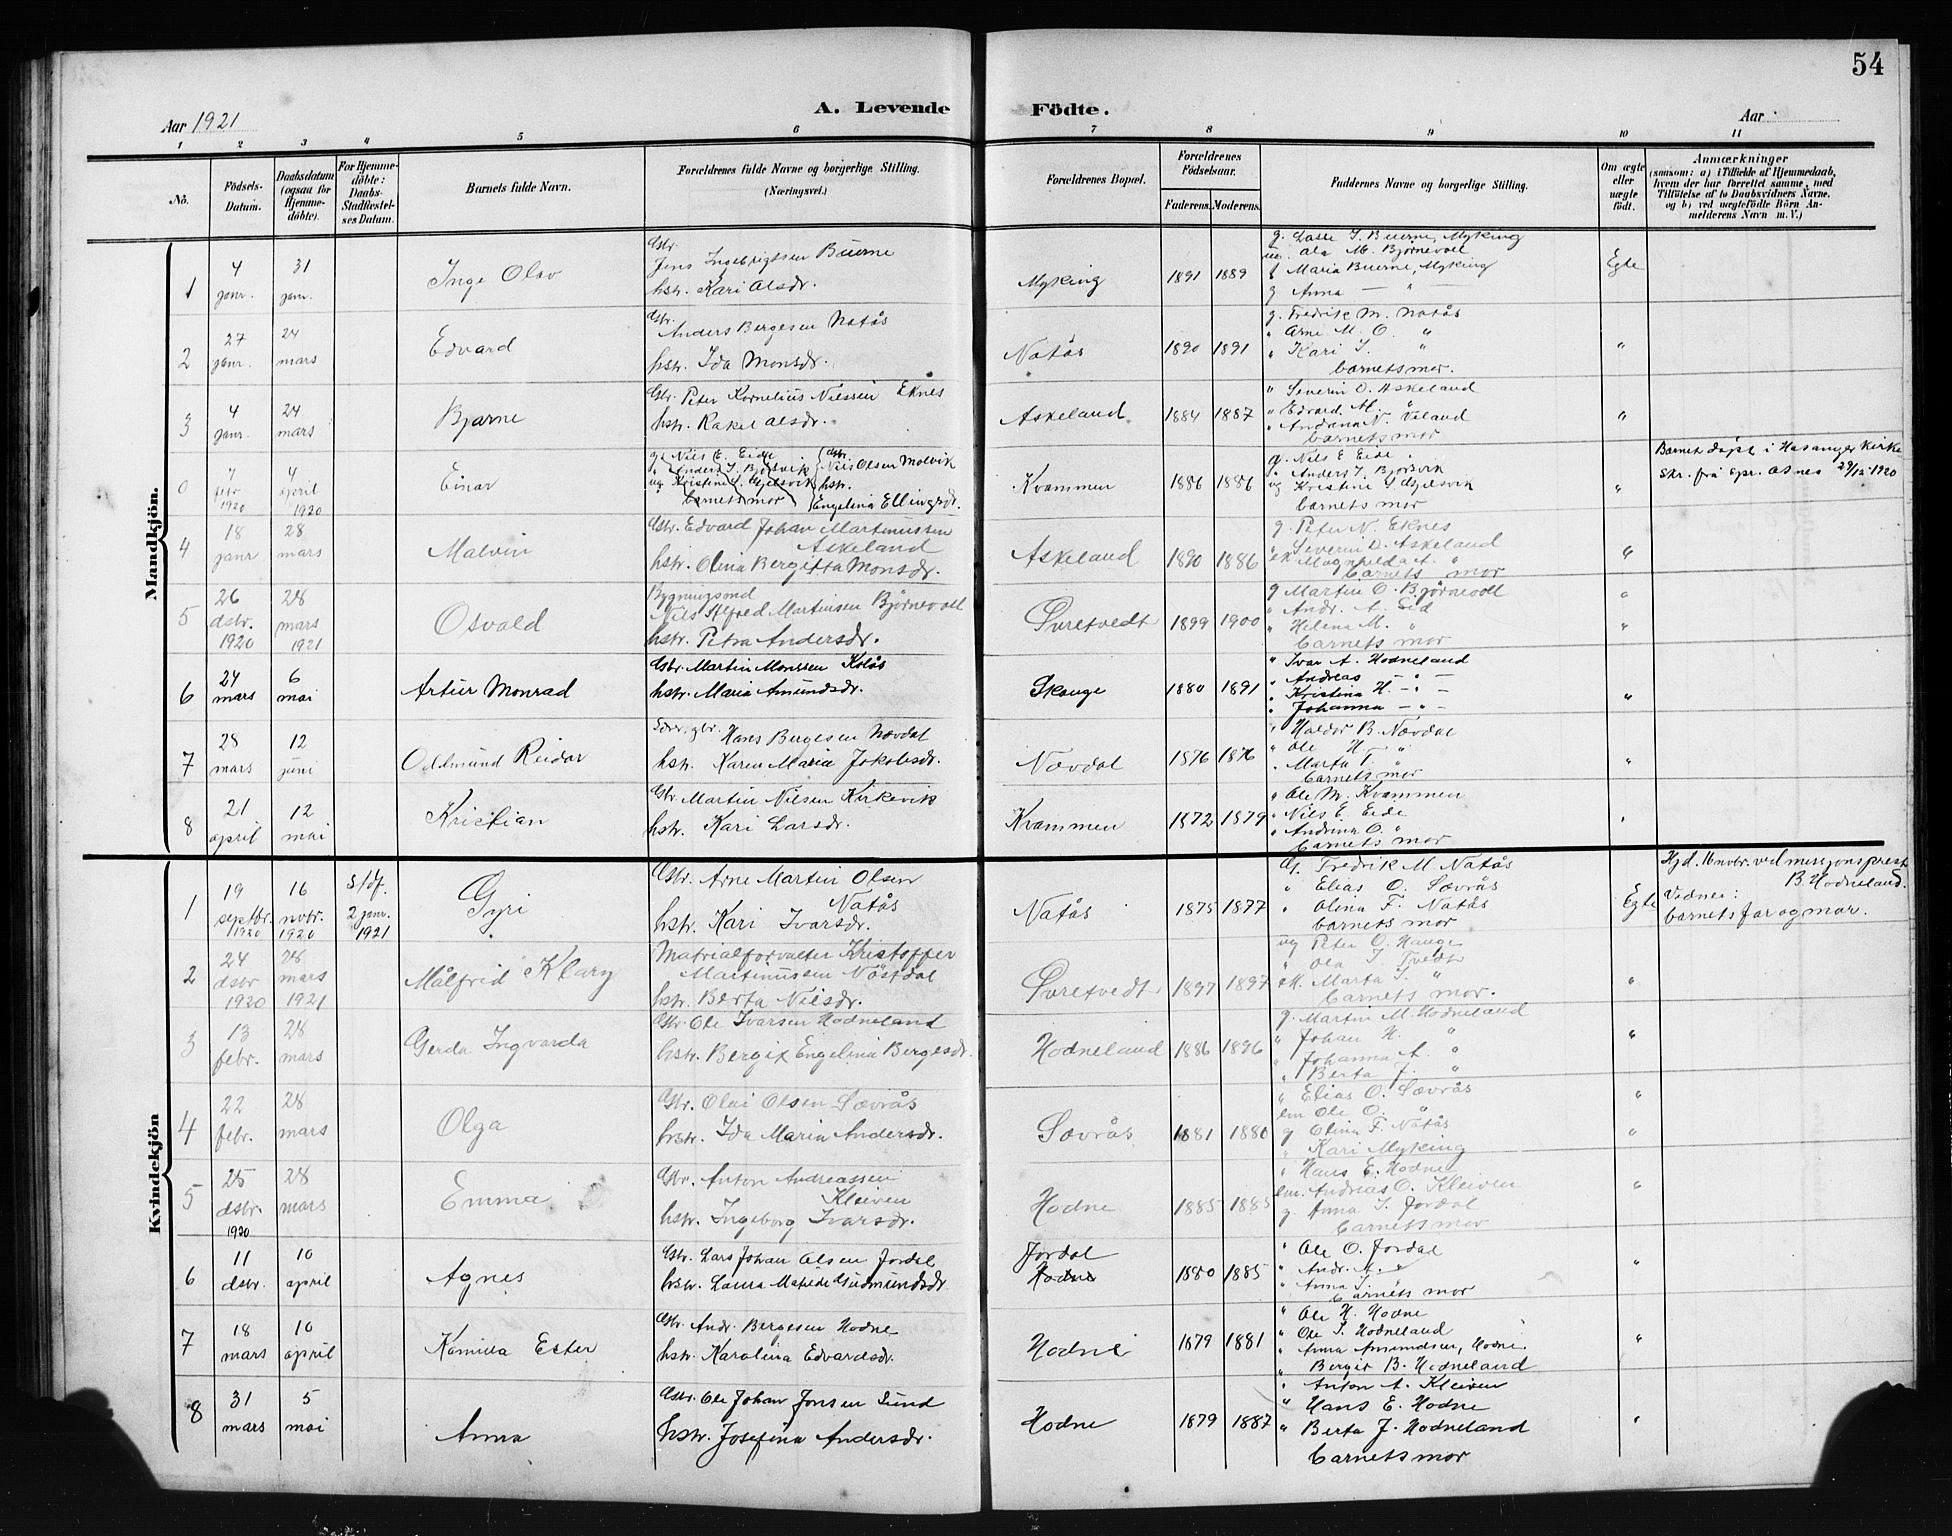 54
A. Levende Födte.
Aar 1921
Aar
1 2 3 4 5 6 7 8 9 10 11
No.
Födsels-Datum.
Daabsdatum (ogsaa for Hjemme-döbte).
For Hjemme-döbte: Daabs-Stadfæstel-ses Datum.
Barnets fulde Navn.
Forældrenes fulde Navne og borgerlige Stilling. (Næringsvei.)
Forældrenes Bopæl.
Forældrenes Födselsaar.
Faderens. Moderens.
Faddernes Navne og borgerlige Stilling.
Om ægte eller uægte født.
Anmærkninger
(saasom: a) i Tilfælde af Hjemmedaab, hvem der har forrettet samme, med Tilføielse af to Daabsvidners Navne, og b) ved uægtefödte Börn Anmelderens Navn m. V.)
Mandkjön.
1
4 janr.
31 janr.
Inge Olav
Gbr. Jens Ingebrigtsen Buerne
hstr. Kari Olsdr.
Myking
1891 1889
g. Lasse J. Buerne, Myking
ug. Ola M. Bjørnevoll
g Maria Buerne, Myking
g Anna — " —
Egte
2
27 janr.
24 mars
Edvard
Gbr. Anders Bergesen Natås
hstr. Ida Monsdr.
Natås
1890 1891
g. Fredrik M. Natås
" Arne M. O. "
" Kari I. "
barnets mor.
"
3
4 janr.
24 mars
Bjarne
Gbr. Peter Kornelius Nilssen Eknes
hstr. Rakel Olsdr.
Askeland
1884 1887
" Severin O. Askeland
" Edvard M. "
" Andrina N. Veland
barnets mor
"
0
7 febr. 1920
4 april 1920
Einar
g. Nils E. Eide
" Anders I. Bjørsvik
ug Kristine S. Gjelsvik
barnets mor
Gbr. Nils Olsen Molvik
hstr. Engelina Ellingsdr.
Kvammen
1886 1886
g. Nils E Eide
" Anders I. Bjørsvik
ug Kristine S Gjelsvik
barnets mor
"
Barnet døpt i Hosanger kirke
skr. frå spr. Åsnes 29/12 1920
4
18 janr
28 mars
Malvin
Gbr. Edvard Johan Martinussen Askeland
hstr. Olina Bergitta Monsdr.
Askeland
1890 1886
g. Peter N. Eknes
" Severin O. Askeland
ek Magnhilda A. "
barnets mor
"
5
26 dsbr. 1920
28 mars 1921
Osvald
Bygningsmd Nils Alfred Martinsen Bjørnevoll
hstr. Petra Andersdr.
Øvretvedt
1899 1900
g Martin O. Bjørnevoll
" Andr. A. Eid
" Helena M. "
barnets mor
"
6
24 mars
6 mai
Artur Monrad
Gbr. Martin Monssen Kolås
hstr. Maria Amundsdr.
Skauge
1880 1891
" Ivar A. Hodneland
" Andreas — " —
" Kristina H. — " —
" Johanna — " —
"
7
28 mars
12 juni
Oddmund Reidar
Gbr. Hans Bergesen Nævdal
hstr. Karen Maria Jakobsdr.
Nævdal
1876 1876
" Haldor B. Nævdal
" Ole H. "
" Marta T. "
barnets mor
"
8
21 april
12 mai
Kristian
Gbr Martin Nilsen Kirkevik
hstr. Kari Larsdr.
Kvammen
1872 1879
" Ole M. Kvammen
" Nils E. Eide
" Andrina O. "
barnets mor
"
Kvindekjön
1
19 septbr. 1920
16 nvbr. 1920
S/df. 2 janr. 1921
Gyri
Gbr. Arne Martin Olsen Natås
hstr. Kari Ivarsdr.
Natås
1875 1877
g. Fredrik M Natås
" Elias O. Sævrås
" Olina F. Natås
barnets mor
Egte
Hjd. 16 nvbr. ved missjonsprest B. Hodneland.
Vidner: barnets far og mor.
2
24 dsbr 1920
28 mars 1921
Målfrid Klary
Matrialforvalter Kristoffer Martinussen Nøstdal
hstr. Berta Nilsdr.
Øvretvedt
1897 1897
ug Peter O. Hauge
" Ola I. Tvedt
ek. Marta I. "
barnets mor.
"
3
13 febr.
28 mars
Gerda Ingvarda
Gbr. Ole Ivarsen Hodneland
hstr. Bergit Engelina Bergesdr.
Hodneland
1886 1896
g. Martin M. Hodneland
" Johan H. "
" Johanna A. "
" Berta J. "
"
4
22 febr.
28 mars
Olga
Gbr. Olai Olsen Sævrås
hstr. Ida Maria Andersdr.
Sævrås
1881 1880
" Elias O. Sævrås
em Ole O. "
g Olina F. Natås
" Kari Myking
"
5
25 dsbr. 1920
28 mars
Emma
Gbr. Anton Andreassen Kleiven
hstr. Ingeborg Ivarsdr.
Hodne
1885 1885
" Hans E. Hodne
em. Andreas O. Kleiven
g. Anna I. Jordal
barnets mor
"
6
11 dsbr.
10 april
Agnes
Gbr. Lars Johan Olsen Jordal
hstr. Laura Matilde Gudmundsdr
Jordal
Hodne
1880 1885
" Ole O. Jordal
" Andr. A. "
" Anna I.
barnets mor
"
7
18 mars
10 april
Kamilla Ester
Gbr. Andr. Bergesen Hodne
hstr. Karolina Edvardsdr.
Hodne
1879 1881
" Ole H. Hodne
" Ole I. Hodneland
" Anna Amundsen, Hodne
" Bergit B. Hodneland
"
8
31 mars
5 mai
Anna
Gbr. Ole Johan Jonsen Lund
hstr. Josefina Andersdr.
Hodne
1879 1887
" Anton A. Kleiven
" Hans E. Hodne
" Berta J. Hodneland
barnets mor
"